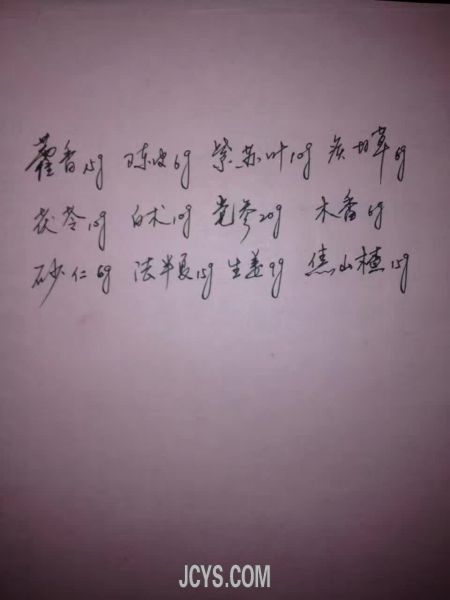 藿香15g 陈皮6g 紫苏叶10g 炙甘草6g
茯苓15g 白术10g 党参20g 木香6g
砂仁6g 法半夏15g 生姜9g 焦山楂15g
JCYS.COM